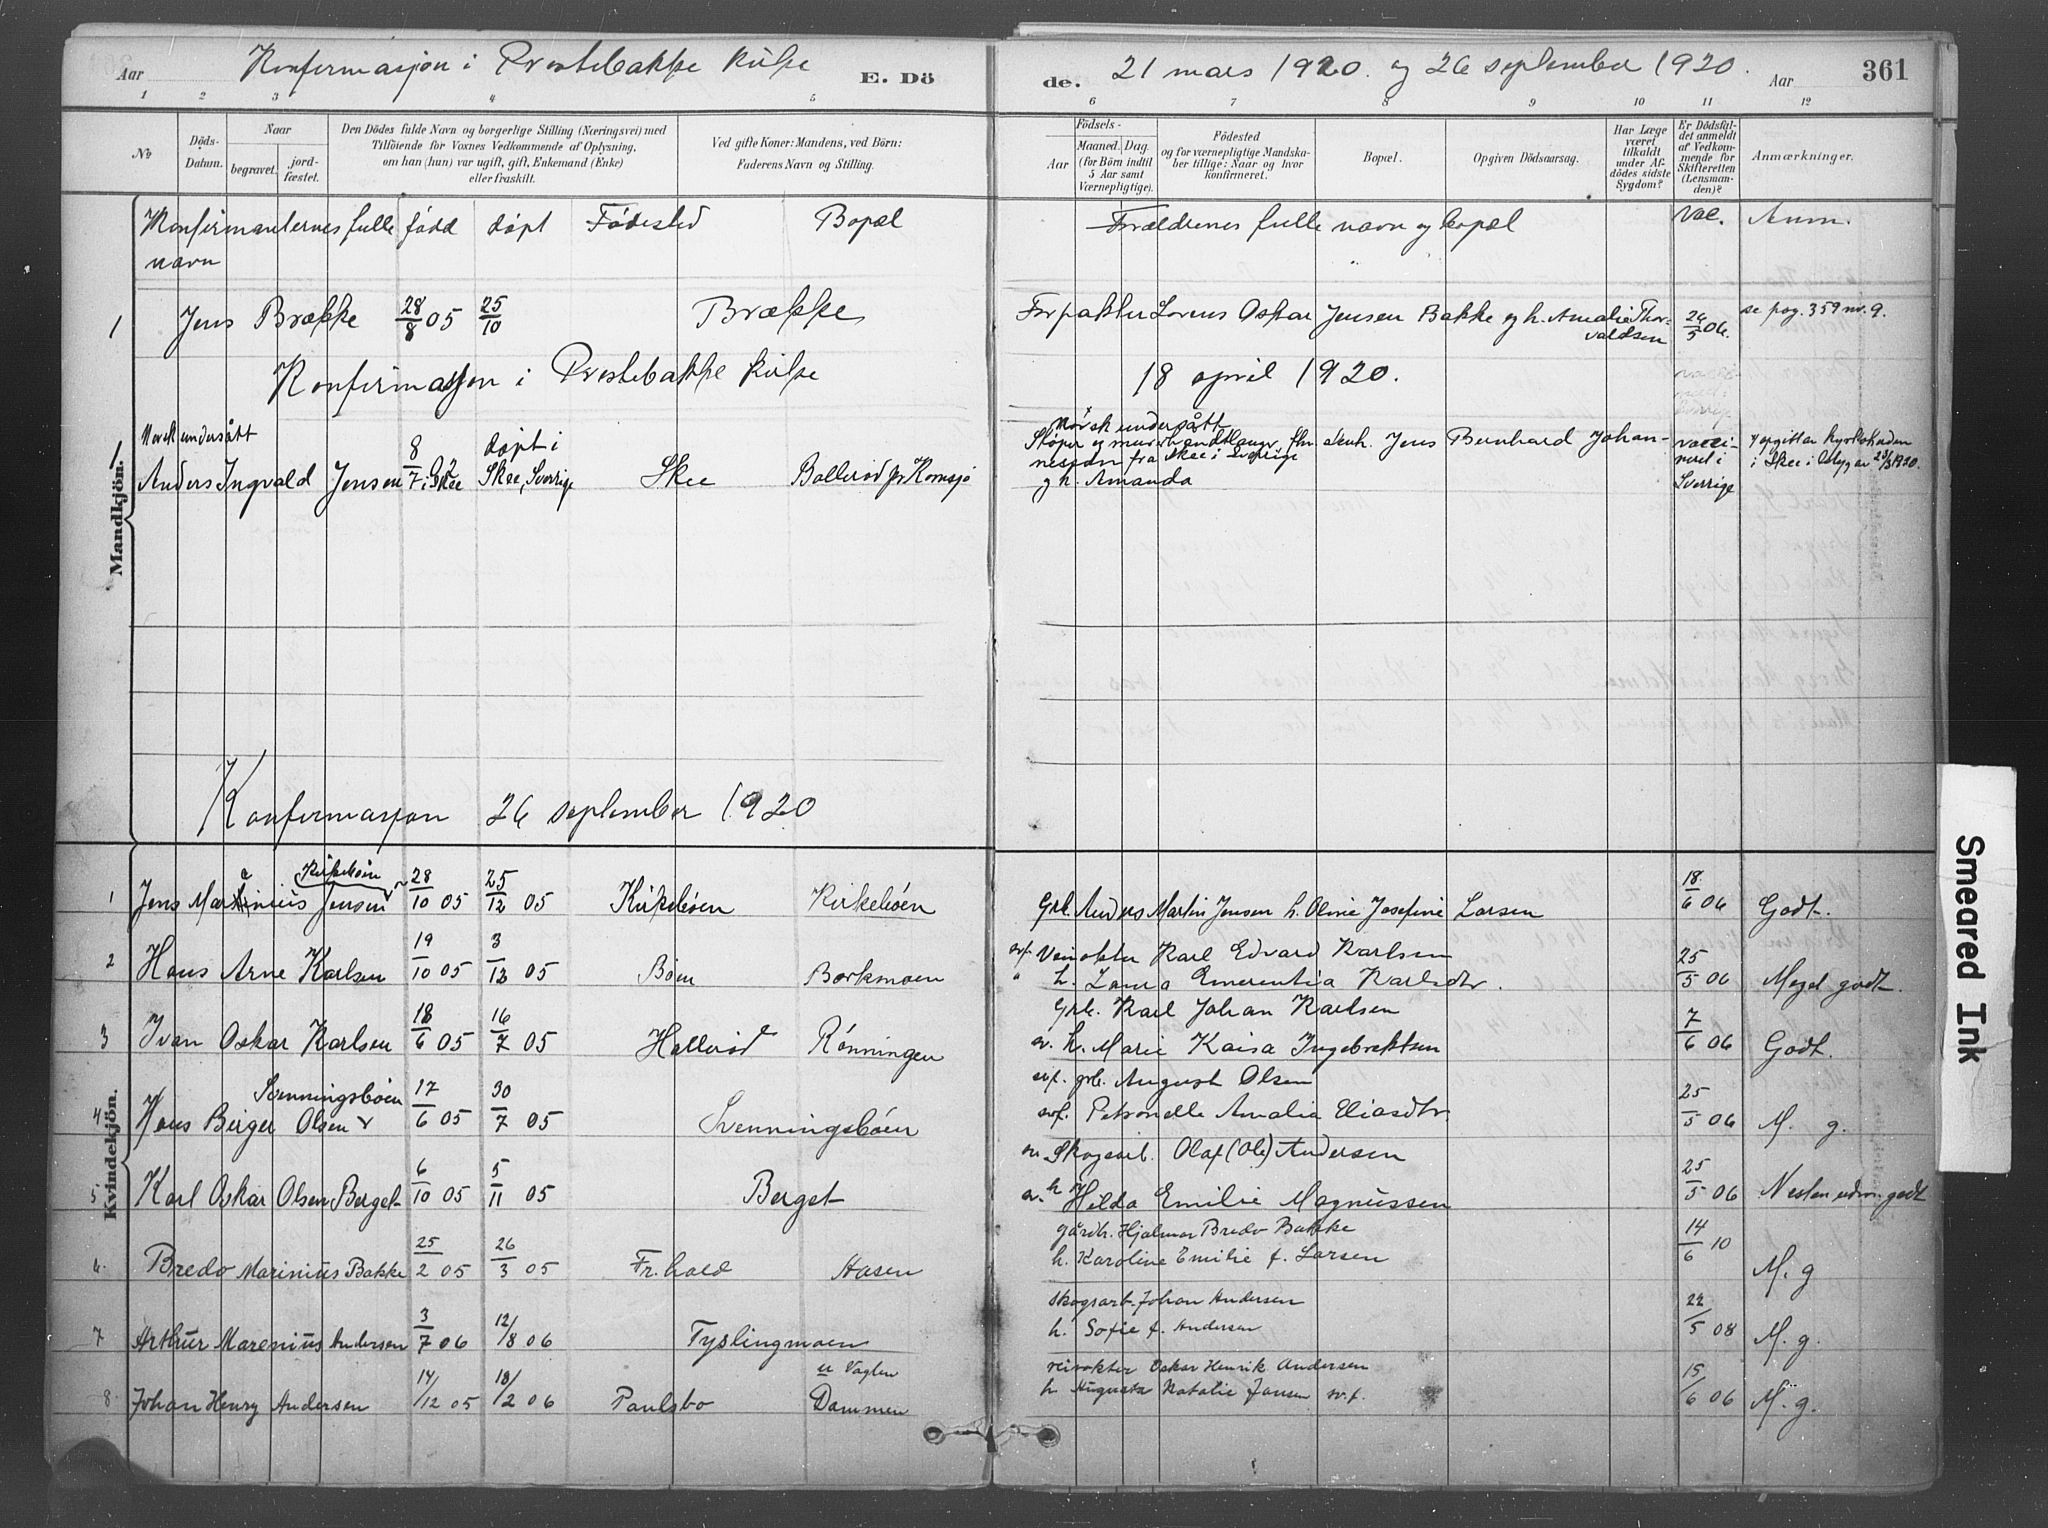 Aar Konfirmasjon i Prestebakke kirke E. Dö
de. 21 mars 1920. og 26 september 1920. Aar 361
1 2 3 4 5 6 7 8 9 10 11 12
No
Döds-Datum.
Naar
begravet.
jord-fæstet.
Den Dödes fulde Navn og borgerlige Stilling (Næringsvei) med
Tilföiende for Voxnes Vedkommende af Oplysning,
om han (hun) var ugift, gift, Enkemand (Enke)
eller fraskilt.
Ved gifte Koner: Mandens, ved Börn:
Faderens Navn og Stilling.
Födsels-
Aar
Maaned. Dag.
(for Börn indtil
5 Aar samt
Værnepligtige).
Födested
og for værnepligtige Mandska-
ber tillige: Naar og hvor
konfirmeret.
Bopæl.
Opgiven Dödsaarsag.
Har Læge
været
tilkaldt
under Af-
dödes sidste
Sygdom?
Er Dödsfal-
det anmeldt
af Vedkom-
mende for
Skifteretten
(Lensman-
den)?
Anmærkninger.
Konfirmanternes fulle navn født døpt Fødested Bopæl
Forældrenes fulle navn og bopæl Vac. Anm.
Mandkjön.
1 Jens Brække 28/8 05 25/10 Brække
Forpakter Lorens Oskar Jensen Bakke og h. Amalie Thorvaldsen 26/5 06. se pag. 359 nr. 9.
Konfirmasjon i Prestebakke kirke
18 april 1920.
Norsk undersått
1 Anders Ingvald Jensen 8/7 02 i Skee døpt i Skee, Sverige Skee Ballerød pr Kornsjø
Norsk undersått
Støper og murerhandtlanger, Jens Bernhard Johannessen fra Skee i Sverige
og h. Amanda
vaccineret i Sverige
i Skee 23/3 1920.
Konfirmasjon 26 september 1920
Kvindekjön.
1 Jens Marinius Jensen Kirkebøen 28/10 05 25/12 05 Kirkebøen Kirkebøen
Grb. Anders Martin Jensen h. Oline Josefine Larsen 18/6 06 Godt.
2 Hans Arne Karlsen 19/10 05 3/12 05 Bøen Borkmoen
Veivokter Karl Edvard Karlsen
h. Laura Emerentia Karlsdtr. 25/5 06 Meget godt.
3 Ivan Oskar Karlsen 18/6 05 16/7 05 Hallerød Rønningen
Grb. Karl Johan Karlsen
h. Marie Kaisa Ingebrektsen 7/6 06 Godt.
4 Hans Birger Olsen Svenningsbøen 17/6 05 30/7 05 Svenningsbøen
grb. August Olsen
Petronelle Amalie Eliasdtr. 25/5 06 M. g.
5 Karl Oskar Olsen Berget 6/10 05 5/11 05 Berget
Skogsarb. Olaf (Ole) Andersen
h Hilda Emilie Magnussen 25/5 06 Nesten udm. godt
6. Bredo Marinius Bakke 25/2 05 26/3 05 Fr.hald Aasen
gårdbr. Hjalmar Bredo Bakke
h. Karoline Emilie f. Larsen 14/6 10 M. g
7 Arthur Marenius Andersen 3/7 06 12/8 06 Tyslingmoen
skogsarb. Johan Andersen
h. Sofie f. Andersen 22/5 08 M. g.
8. Johan Henry Andersen 14/12 05 18/2 06 Paulsbo Dammen u Vaglen
veivokter Oskar Henrik Andersen
h Augusta Natalie Jansen sv.f. 15/6 06 M. g.
Smeared Ink